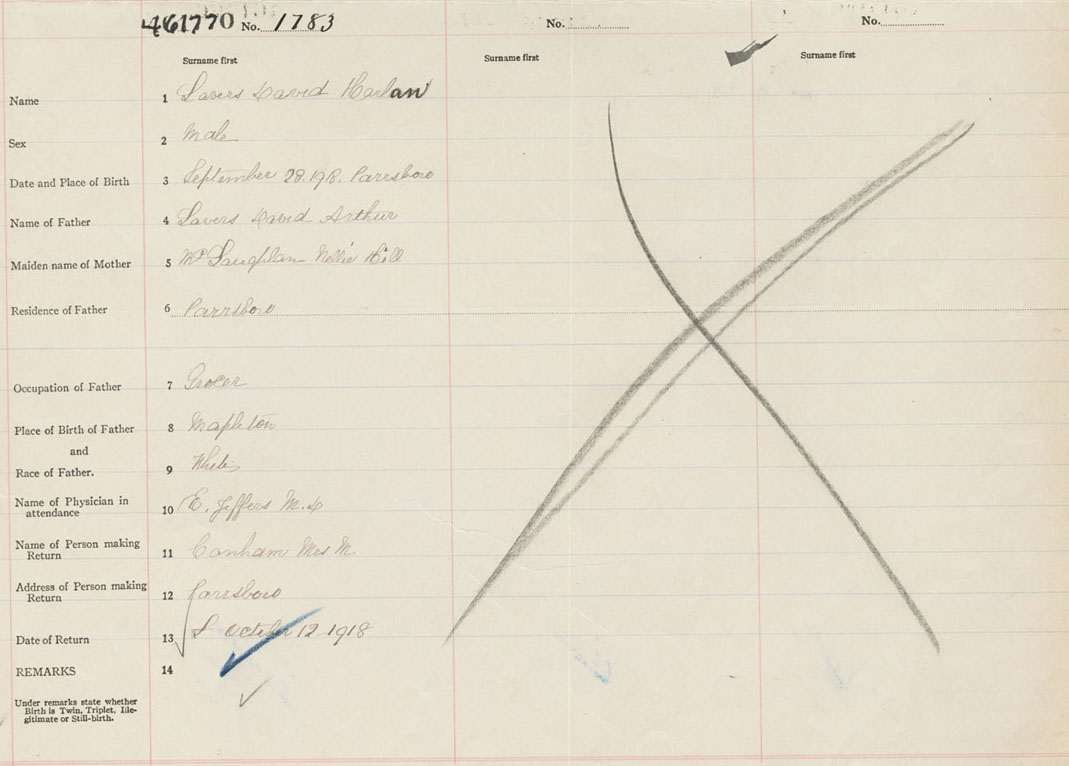 461770 No. 1783 No. No.
Surname first Surname first Surname first
Name 1 Lavers David Harlan
Sex 2 Male
Date and Place of Birth 3 September 28. 1918. Parrsboro
Name of Father 4 Lavers David Arthur
Maiden name of Mother 5 McLaughlan Nellie Hill
Residence of Father 6 Parrsboro
Occupation of Father 7 Grocer
Place of Birth of Father 8 Mapleton
and
Race of Father. 9 White
Name of Physician in
attendance 10 E. Jeffers M.D
Name of Person making
Return 11 Canham Mrs M.
Address of Person making
Return 12 Parrsboro
Date of Return 13 October 12 1918
REMARKS 14
Under remarks state whether
Birth is Twin, Triplet, Ille-
gitimate or Still-birth.